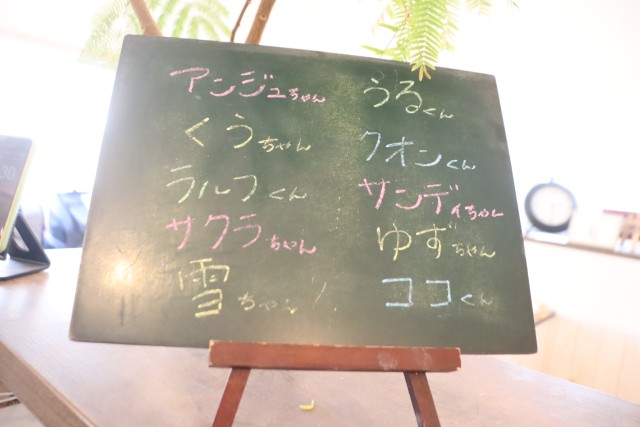 アンジュちゃん
くうちゃん
ラルフくん
サクラちゃん
雪ちゃん
うるくん
クオンくん
サンディちゃん
ゆずちゃん
ココくん